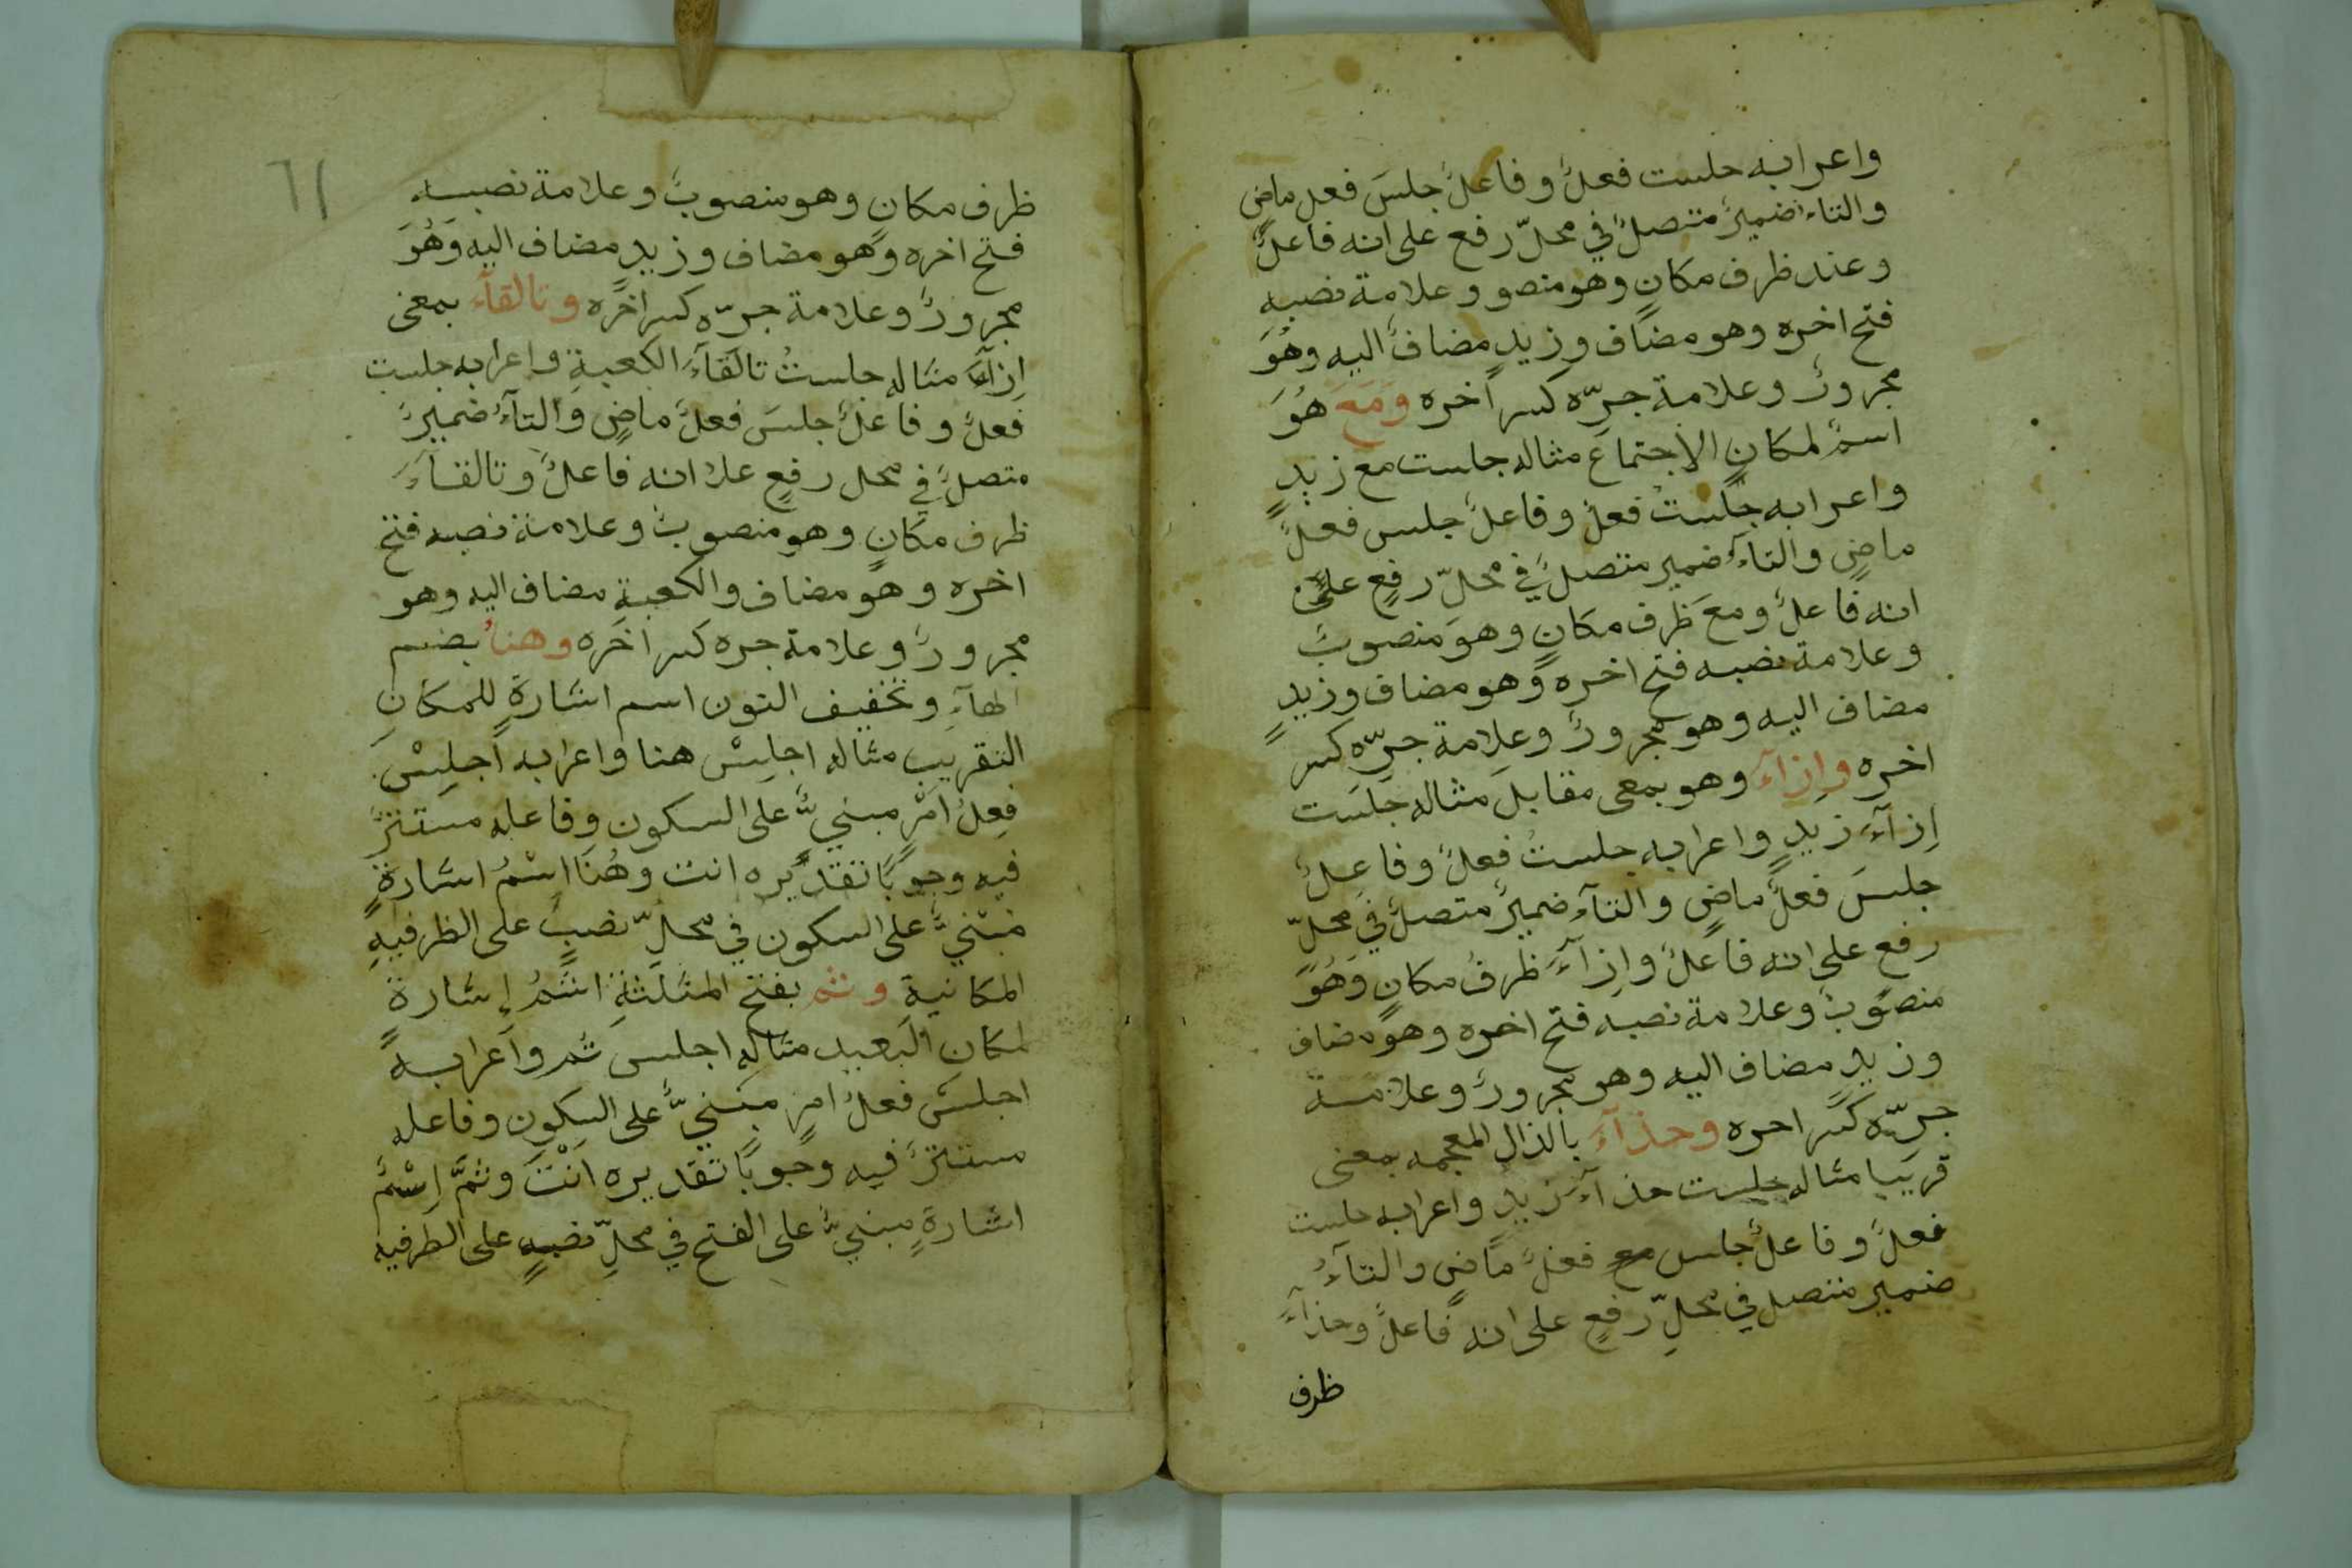 واعرابه جلست فعلٌ وفاعلٌ جلسَ فعل ماضٍ
والتاء ضميرٌ متصلٌ في محلّ رفع على انه فاعلٌ
وعند ظرف مكانٍ وهو منصو وعلامة نصبهِ
فتح اخره وهو مضاف وزيدٍ مضافٌ اليه وهُوَ
مجرورٌ وعلامة جرّه كسر اخره وَمَعَ هُوَ
اسمٌ لمكانِ الاجتماع مثاله جلست مع زيدٍ
واعرابه جلستُ فعلٌ وفاعلٌ جلس فعلٌ
ماضٍ والتآءُ ضمير متصلٌ في محلّ رفعٍ على
انه فاعلٌ ومعَ ظرف مكانٍ وهوَ منصوبٌ
وعلامة نصبه فتح اخرهِ وهو مضاف وزيدٍ
مضاف اليه وهو مجرورٌ وعلامة جرّه كسر
اخره وازآءَ وهو بمعى مقابلَ مثاله جلَست
اِزآءَ زيدٍ واعرابه جلستُ فعلٌ وفاعِلٌ
جلسَ فعلٌ ماضٍ والتآءُ ضميرٌ متصلٌ في محلّ
رفعٍ على انه فاعلٌ وإزآءَ ظرفُ مكانٍ وَهُوَ
منصوبٌ وعلامة نصبه فتح اخره وهو مضاف
وزيدٍ مضاف اليه وهو مجرورٌ وعلامة
جرّه كسر اخره وحذآءَ بالذال المعجمه بمعنى
قريبا مثاله جلست حذآءَ زيدٍ واعرابه جلست
فعلٌ وفاعلٌ جلس فعلٌ ماضٍ والتآءُ
ضمير متصل في محلِّ رفعٍ على انه فاعلٌ وحذآءَ
ظرف
٦١
ظرف مكانٍ وهو منصوبٌ وعلامة نصبه
فتح اخره وهو مضاف وزيدٍ مضاف اليه وَهُوَ
مجرورٌ وعلامة جرّه كسر اخره وتالقآء بمعنى
اِزآءَ مثاله جلستُ تالقآءَ الكعبةِ واعرابه جلست
فعلٌ وفاعلٌ جلسَ فعلٌ ماضٍ والتآءُ ضميرٌ
متصلٌ في محل رفعٍ علا انه فاعلٌ وتالقآءَ
ظرف مكانٍ وهو منصوبٌ وعلامة نصبه فتح
اخره وهو مضاف والكعبةِ مضاف اليه وهو
مجرورٌ وعلامة جره كسر اخره وهنا بضم
الهآءِ وتخفيف النون اسم اشارةٍ للمكانِ
التقريب مثاله اجلِسْ هنا واعرابه اجلِسْ
فِعلُ امرٍ مبنيٌّ على السكون وفاعله مستترٌ
فيه وجوبًا تقديره انت وهُنَا اِسْمُ اشارةٍ
مبْنيٌّ على السكون في محلِّ نصبٍ على الظرفيهِ
المكانيةِ وثم بفتح المثلثةِ اسْمُ إشارةٍ
لمكان البعيد مثاله اجلس ثم واعرابه
اجلسْ فعلُ امرٍ مبنيٌّ على السكون وفاعله
مستترٌ فيه وجوبًا تقديره اَنْتَ وثمَّ اِسْمُ
اشارةٍ مبنيٌّ على الفتح في محلِّ نصبٍ على الظرفيه